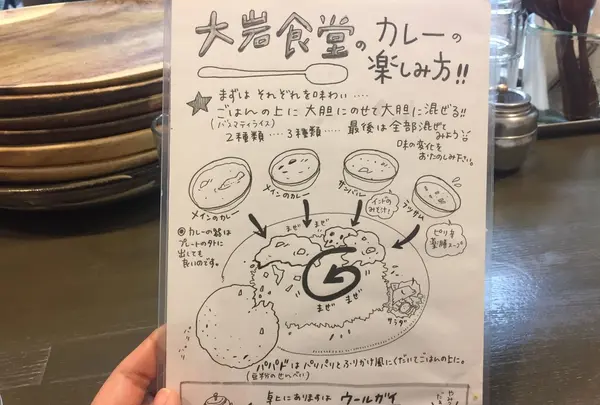 大岩食堂のカレーの
楽しみ方!!
まずは それぞれを味わい‥‥
ごはんの上に 大胆にのせて大胆に混ぜる!!
(バスマティライス)
2種類‥‥3種類‥‥ 最後は全部混ぜて
みよう
味の変化を
おたのしみ下さい。
メインのカレー
メインのカレー
サンバル
インドの
みそ汁!
ラッサム
ピリ辛
薬膳スープ
◎カレーの器は
プレートの外に
出しても
良いのです。
まぜ まぜ
まぜ まぜ
サラダ
パリパリ
パパドはパリパリとふりかけ風にくだいてごはんの上に。
(豆粉のせんべい)
卓上にありますは ウールガイ